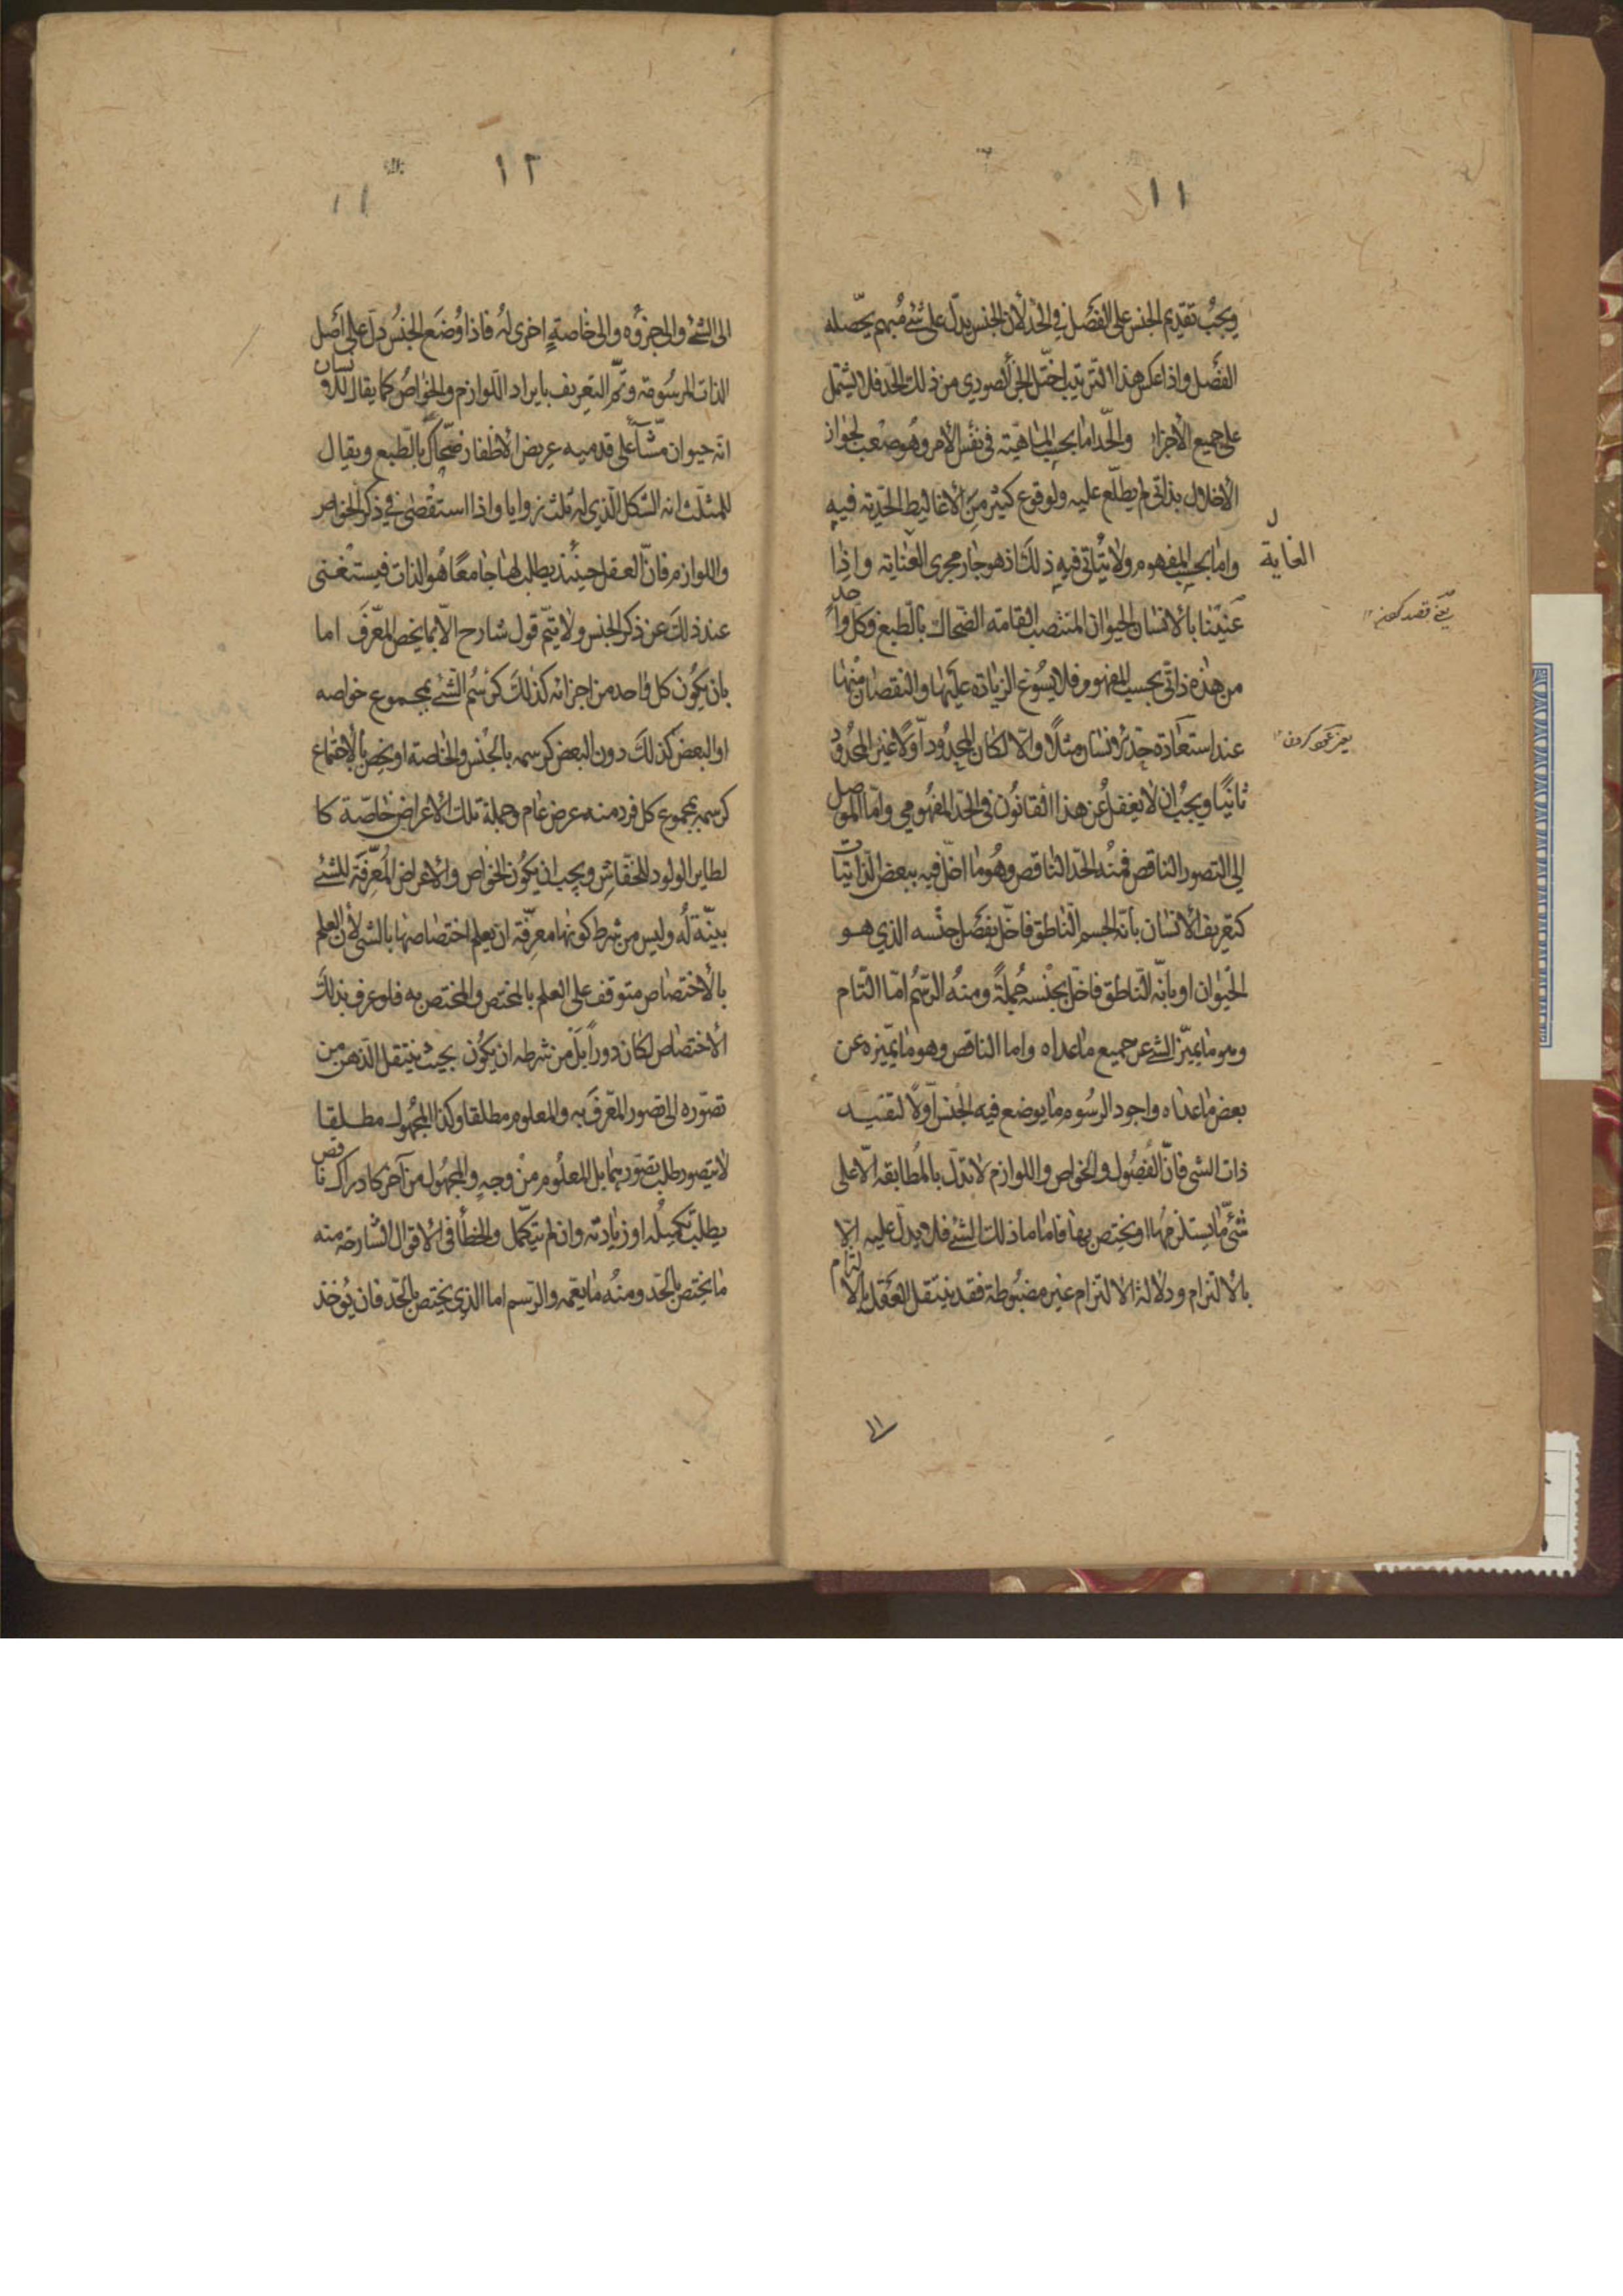 ١١
ويجب تقديم الجنس على الفصل في الحد لأن الجنس يدل على شئ مبهم يحصله
الفصل واذا عكس هذا الترتيب اختل الجزء الصوري من ذلك الحد فلا يشتمل
على جميع الأجزاء والحد اما بحسب الماهية في نفس الأمر وهو صعب لجواز
الأخلال بذاتي لم يطلع عليه ولوقوع كثير من الأغاليط الحدية فيه
واما بحسب المفهوم ولا يتأتى فيه ذلك اذ هو جار مجرى العناية واذا
عنينا بالانسان الحيوان المنتصب القامة الضحاك بالطبع وكل واحد
من هذه ذاتي بحسب المفهوم فلا يسوغ الزيادة عليها والنقصان منها
عند استعادة حد الانسان مثلا والا لكان المحدود اولا غير المحدود
ثانيا ويجب ان لا يغفل عن هذا القانون في الحد المفهومي واما الموصل
الى التصور الناقص فمنه الحد الناقص وهو ما اخل فيه ببعض الذاتيات
كتعريف الانسان بأنه الجسم الناطق فاخل بفصل جنسه الذي هو
الحيوان او بانه الناطق فاخل بجنسه جملة ومنه الرسم اما التام
وهو ما يميز الشئ عن جميع ما عداه واما الناقص وهو ما يميزه عن
بعض ما عداه واجود الرسوم ما يوضع فيه الجنس اولا لتقيد
ذات الشى فان الفصول والخواص واللوازم لا تدل بالمطابقة الا على
شئ ما يستلزمها او يختص بها فاما ما ذلك الشئ فلا يدل عليه الا
بالالتزام ودلالة الالتزام غير مضبوطة فقد ينتقل العقل بالالتزام
الغاية
يعني قصد كنيم
١١
١٢
١١
الى الشئ والى جزؤه والى خاصة اخرى له فاذا وضع الجنس دل على اصل
الذات المرسومة وتم التعريف بايراد اللوازم والخواص كما يقال للانسان
انه حيوان مشاء على قدميه عريض الاظفار ضحاك بالطبع ويقال
للمثلث انه الشكل الذي له ثلث زوايا واذا استقصى في ذكر الخواص
واللوازم فان العقل حينئذ يطلب لها جامعا هو الذات فيستغنى
عند ذلك عن ذكر الجنس ولا يتم قول شارح الا بما يخص المعرف اما
بان يكون كل واحد من اجزائه كذلك كرسم الشئ بمجموع خواصه
او البعض كذلك دون البعض كرسمه بالجنس والخاصة او يخص بالاجتماع
كرسمه بمجموع كل فرد منه عرض عام وجملة تلك الاعراض خاصة كا
لطاير الولود للخفاش ويجب ان يكون الخواص والأعراض المعرفة للشئ
بينة له وليس من شرط كونها معرفة ان يعلم اختصاصها بالشى لأن العلم
بالأختصاص متوقف على العلم بالمختص والمختص به فلو عرف بذلك
الأختصاص لكان دورا بل من شرطه ان يكون بحيث ينتقل الذهن من
تصوره الى تصور المعرف به والمعلوم مطلقا وكذا المجهول مطلقا
لا يتصور طلب تصورهما بل المعلوم من وجه والمجهول من آخر كادراك ناقص
يطلب تكميله او زيادته وان لم يتكمل والخطأ في الاقوال الشارحة منه
ما يختص بالحد ومنه ما يعمه والرسم اما الذي يختص بالحد فان يؤخذ